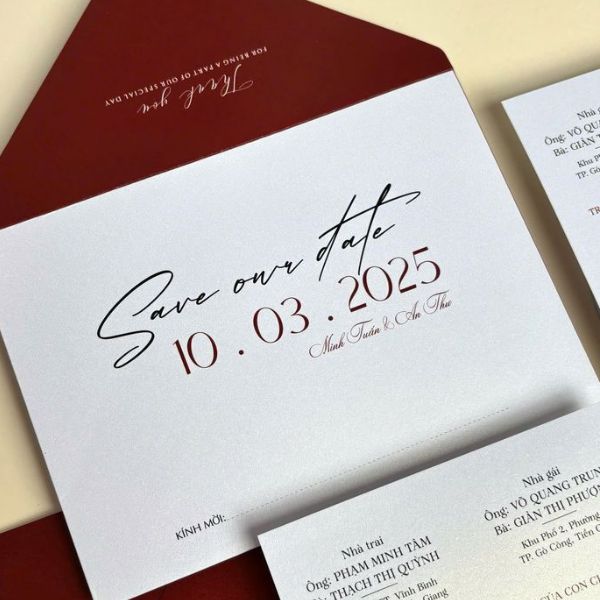 Thank you
FOR BEING A PART OF OUR SPECIAL DAY
Save our date
10 . 03 . 2025
Minh Tuấn & An Thư
KÍNH MỜI:
Nhà trai
Ông: PHẠM MINH TÂM
Bà: THẠCH THỊ QUỲNH
TT. Vĩnh Bình
Giang
Nhà gái
Ông: VÕ QUANG TRUN
Bà: GIẢN THỊ PHƯỢN
Khu Phố 2, Phường
TP. Gò Công, Tiền
CỦA CON
Nhà
Ông: VÕ QUANG
Bà: GIẢN
Khu
TP. Gò
TR